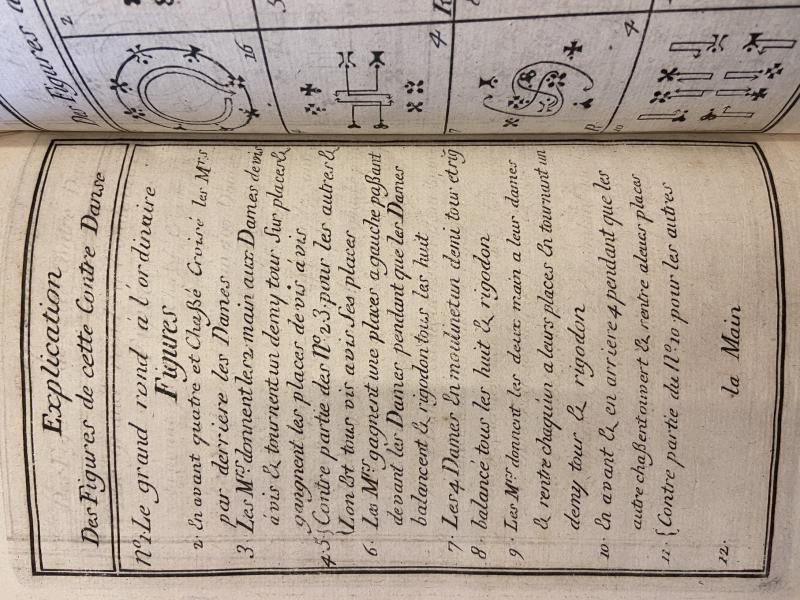 No Figures
2
5
16
4
4
7
10
Explication
Des Figures de cette Contre Danse
No. 1. Le grand rond à l'ordinaire
Figures
2. En avant quatre et Chaßé Croisé les Mrs
par derriere les Dames
3. Les Mrs donnent les 2 main aux Dames de vis
à vis & tournent un demy tour Sur places &
gangnent les places de vis à vis
4.5 { Contre partie des No. 2.3. pour les autres &
{ Lon Est tous vis avis les places
6. Les Mrs gagnent une places a gauche paßant
devant les Dames pendant que les Dames
balancent & rigodon tous les huit
7. Les 4 Dames En moulinet un demi tour et rig
8. balancé tous les huit & rigodon
9. Les Mrs donnent les deux main a leur dames
& rentre chaquun a leurs places En tournant un
demy tour & rigodon
10. En avant & en arriere 4 pendant que les
autre chaßent onvert & rentre a leurs places
11. { Contre partie du No. 10 pour les autres
12. la Main